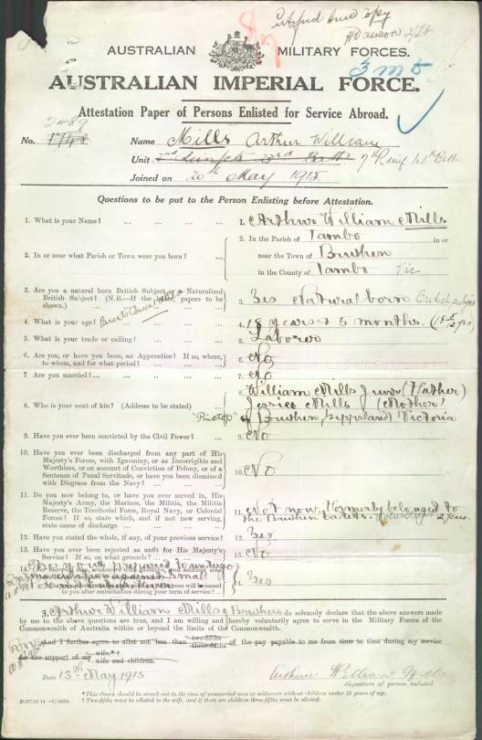 Certified true copy
AUSTRALIAN MILITARY FORCES.
3 MD
AUSTRALIAN IMPERIAL FORCE.
Attestation Paper of Persons Enlisted for Service Abroad.
2489
No. 1748 Name Mills Arthur William
Unit 7th Reinf 14th Battn
Joined on 20th May 1915
Questions to be put to the Person Enlisting before Attestation.
1. What is your Name? ... ... ... ... 1. Arthur William Mills
2. In or near what Parish or Town were you born? ... 2. In the Parish of Tambo in or
near the Town of Bruthen
in the County of Tambo Vic
3. Are you a natural born British Subject or a Naturalized
British Subject? (N.B.—If the latter papers to be
shown.) ... 3. Yes Natural born British subject
4. What is your age? ... 4. 18 years & 5 months.
5. What is your trade or calling? ... ... 5. Laborer
6. Are you, or have you been, an Apprentice? If so, where,
to whom, and for what period? ... ... 6. No
7. Are you married? ... ... ... 7. No
8. Who is your next of kin? (Address to be stated) ... 8. William Mills Junr (Father)
Jessie Mills (Mother)
Bruthen, Gippsland Victoria
9. Have you ever been convicted by the Civil Power? ... 9. No
10. Have you ever been discharged from any part of His
Majesty's Forces, with Ignominy, or as Incorrigible and
Worthless, or on account of Conviction of Felony, or of a
Sentence of Penal Servitude, or have you been dismissed
with Disgrace from the Navy? ... 10. No
11. Do you now belong to, or have you ever served in, His
Majesty's Army, the Marines, the Militia, the Militia
Reserve, the Territorial Force, Royal Navy, or Colonial
Forces? If so, state which, and if not now serving,
state cause of discharge ... 11. Not now. Formerly belonged to
the Bruthen Cadets 2 years.
12. Have you stated the whole, if any, of your previous service? 12. Yes
13. Have you ever been rejected as unfit for His Majesty's
Service? If so, on what grounds? ... 13. No
Are you prepared to undergo
inoculation against small
14. Yes
I, Arthur William Mills, Bruthen do solemnly declare that the above answers
made by me to the above questions are true, and I am willing and hereby voluntarily agree to serve in the Military Forces of the
Commonwealth of Australia within or beyond the limits of the Commonwealth.
And I further agree to allot not less than two-fifths three-fifths of the pay payable to me from time to time during my service
for the support of my wife wife and children.
Date 13th May 1915 Arthur William Mills
Signature of person enlisted.
*This clause should be struck out in the case of unmarried men or widowers without children under 18 years of age.
† Two-fifths must be allotted to the wife, and if there are children three-fifths must be allotted.